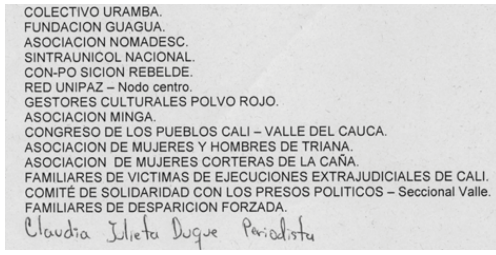 COLECTIVO URAMBA.
FUNDACION GUAGUA.
ASOCIACION NOMADESC.
SINTRAUNICOL NACIONAL.
CON-PO SICION REBELDE.
RED UNIPAZ – Nodo centro.
GESTORES CULTURALES POLVO ROJO.
ASOCIACION MINGA.
CONGRESO DE LOS PUEBLOS CALI – VALLE DEL CAUCA.
ASOCIACION DE MUJERES Y HOMBRES DE TRIANA.
ASOCIACION DE MUJERES CORTERAS DE LA CAÑA.
FAMILIARES DE VICTIMAS DE EJECUCIONES EXTRAJUDICIALES DE CALI.
COMITÉ DE SOLIDARIDAD CON LOS PRESOS POLITICOS – Seccional Valle.
FAMILIARES DE DESPARICION FORZADA.
Claudia Julieta Duque Periodista